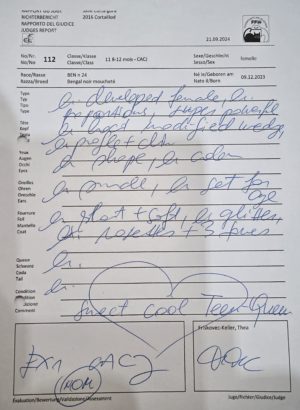 RAPPORT DU JUGE
RICHTERBERICHT
RAPPORTO DEL GIUDICE
JUDGES REPORT
2016 Cortaillod
FFH
21.09.2024
No/Nr. 112 Classe/Klasse 11 8-12 mois - CACJ Sexe/Geschlecht femello
No/No Classe/Class Sesso/Sex
Race/Rasse BEN n 24 Né le/Geboren am 09.12.2023
Razza/Breed Bengal noir moucheté Nato il/Born
Type
Typ
Tipo
Type
ex. developed female, ex.
proportions, super powerful
Tête
Kopf
Testa
ex. head, modified wedge,
ex. profile + chin
Yeux
Augen
Occhi
Eyes
ex. shape, ex. color
Oreilles
Ohren
Orecchie
Ears
ex. small, ex. set for
age
Fourrure
Fell
Mantello
Coat
ex. short + soft, ex. glitter,
ex. rosettes +
Queue
Schwanz
Coda
Tail
ex.
Condition
Kondition
Condizione
Condition
ex.
Comment
Sweet cool Teen Queen
EX1 CACJ
NOM
Frliskovec-Keller, Thea
Evaluation/Bewertung/Validzione/Assessment
Juge/Richter/Giudice/Judge